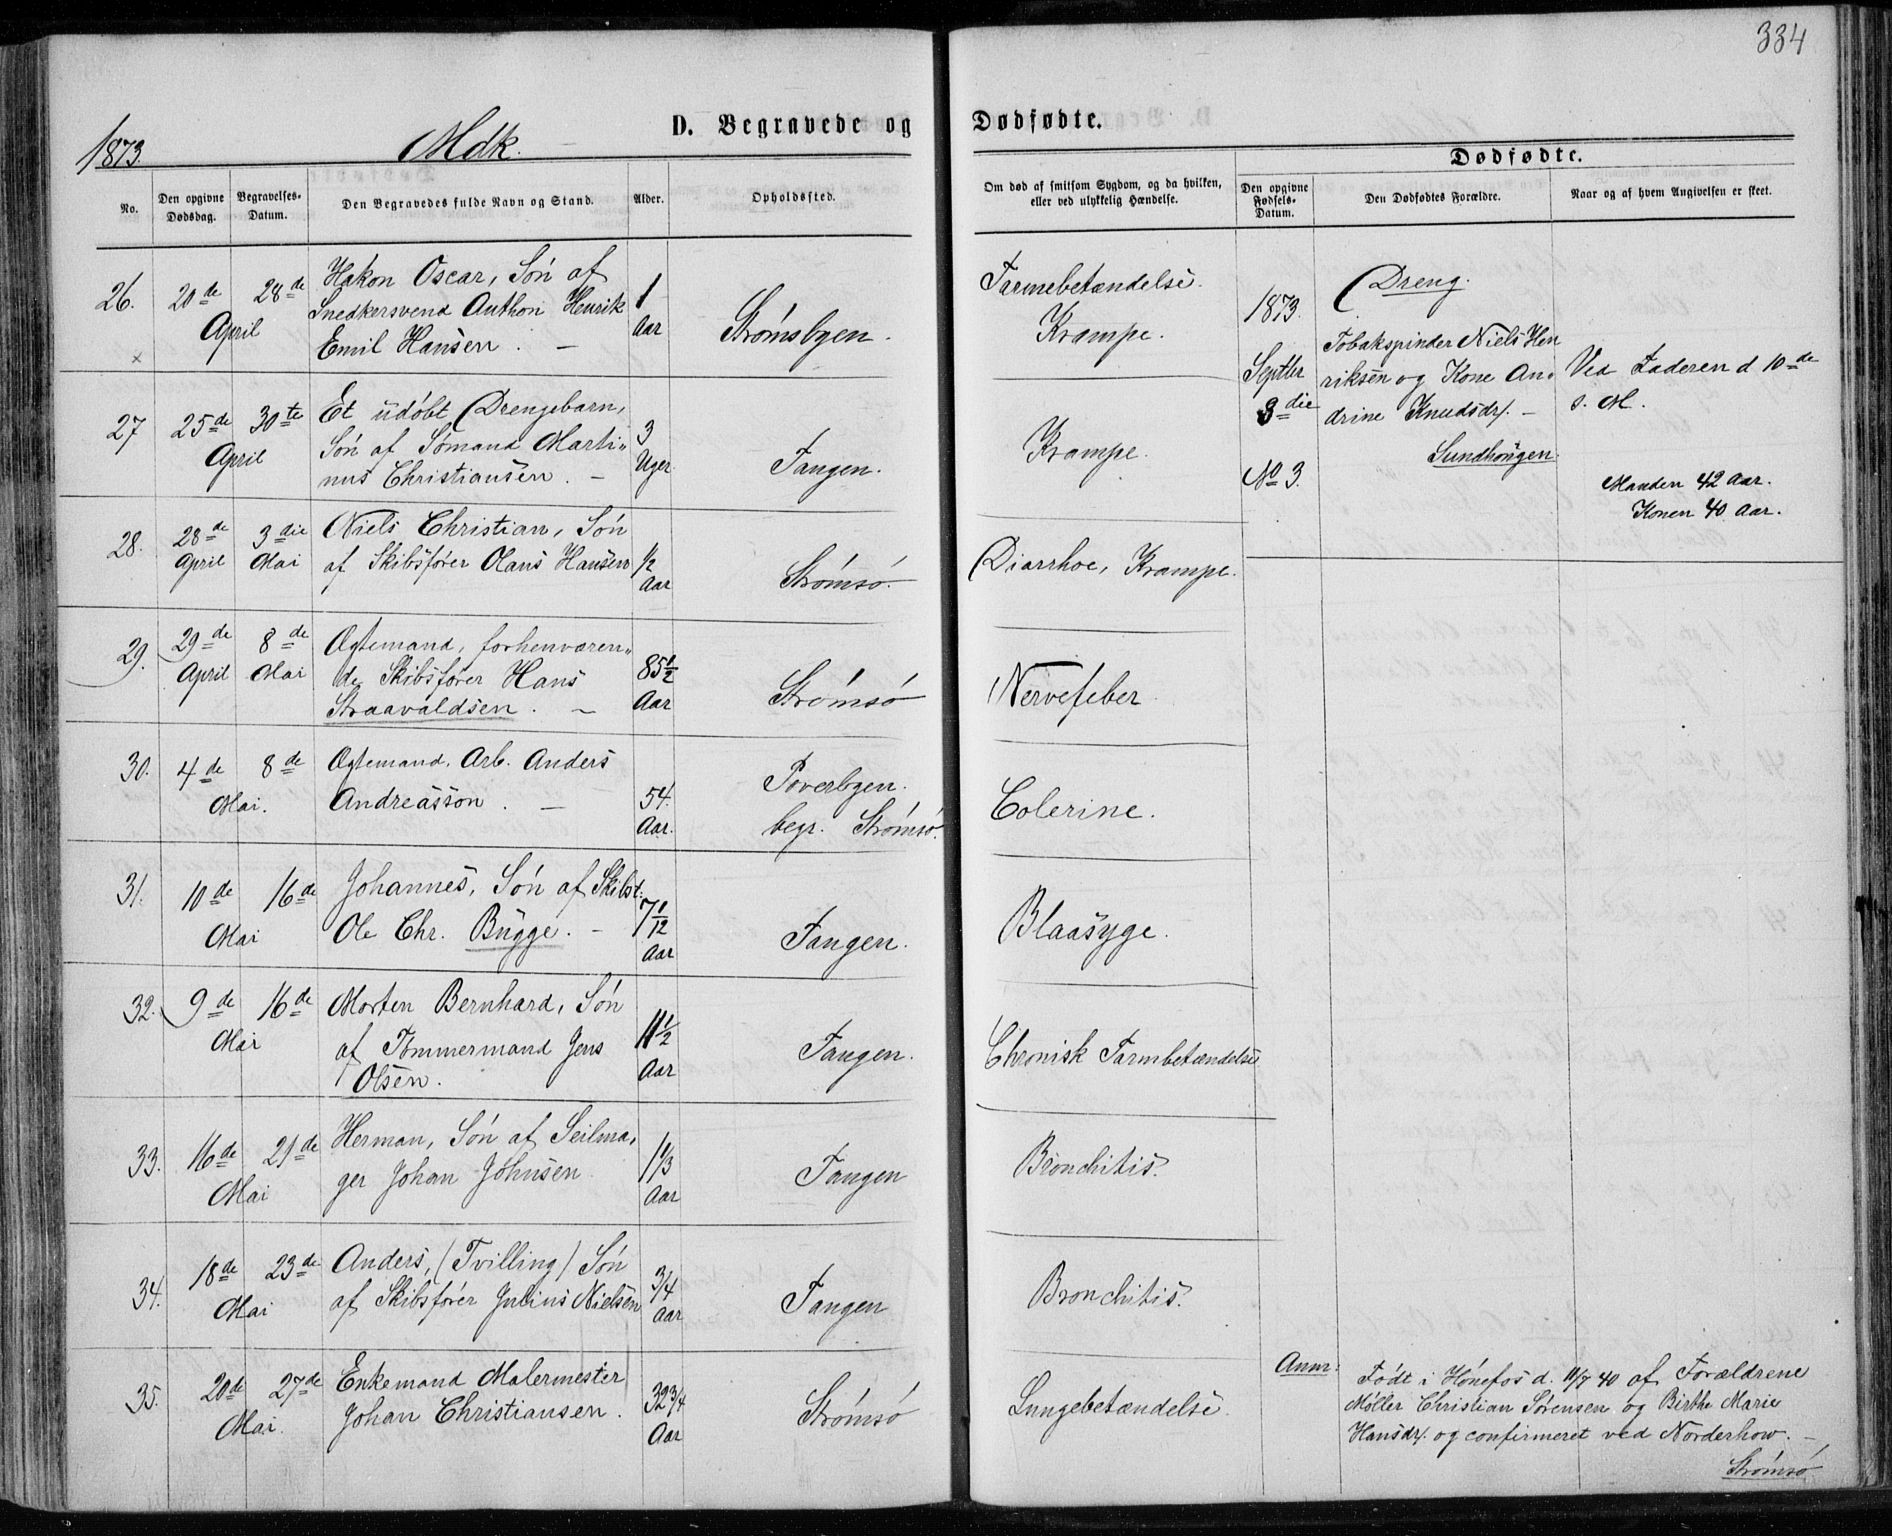 334
1873.
Mdk.
D. Begravede og Dødfødte.
Dødfødte.
No.
Den opgivne Dødsdag.
Begravelses-Datum.
Den Begravedes fulde Navn og Stand.
Alder.
Opholdsted.
Om død af smitsom Sygdom, og da hvilken,
eller ved ulykkelig Hændelse.
Den opgivne Fødsels-Datum.
Den Dødfødtes Forældre.
Naar og af hvem Angivelsen er skeet.
26. 20de 28de April
Hakon Oscar, Søn af
Snedkersvend Anthon Henrik
Emil Hansen. —
1 Aar
Strømsbyen.
Tarmebetændelse.
Krampe.
27 25de 30te April
Et udøbt Drengebarn,
Søn af Sømand Marti„
nus Christiansen. —
3 Uger.
Tangen.
Krampe.
28. 28de April 3die Mai
Niels Christian, Søn
af Skibsfører Olaus Hansen
1/2 Aar
Strømsø.
Diarrhoe, Krampe.
29. 29de April 8de Mai
Ægtemand, forhenværen„
de Skibsfører Hans
Straavaldsen. —
85 1/2 Aar
Strømsø
Nervefeber
30. 4de 8de Mai.
Ægtemand, Arb. Anders
Andreasson. —
54. Aar.
Poverbyen.
begr. Strømsø.
Colerine.
31. 10de 16de Mai
Johannes, Søn af Skibst.
Ole Chr. Bugge. —
7 1/12 Aar
Tangen.
Blaasyge.
32. 9de 16de Mai
Morten Bernhard, Søn
af Tømmermand Jens
Olsen.
11 1/2 Aar
Tangen.
Chronisk Tarmbetændelse
33. 16de 21de Mai
Herman, Søn af Seilma,
ger Johan Johnsen
1 1/3 Aar
Tangen
Bronchitis.
34. 18de 23de Mai
Anders, (Tvilling) Søn
af Skibsfører Julius Nielsen
3/4 Aar
Tangen
Bronchitis.
35. 20de 27de Mai.
Enkemand Malermester
Johan Christiansen.
32 3/4 Aar
Strømsø
Lungebetændelse.
1873.
Septbr
3die
No 3.
Dreng.
Tobakspinder Niels Hen
riksen og Kone An„
drine Knudsdr. —
Sundhougen.
Ved Faderen d 10de
s. M.
Manden 42 Aar.
Konen 40 Aar.
Anm: Født i Hønefos d. 11/7 40 af Forældrene
Møller Christian Sørensen og Birthe Marie
Hansdr. og confirmeret ved Norderhow. —
Strømsø